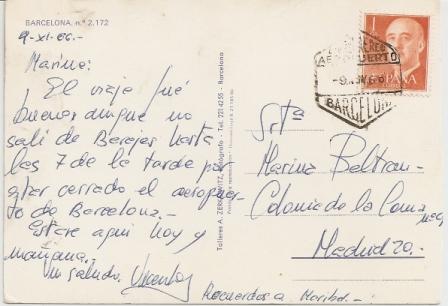 BARCELONA, n.º 2.172
9-XI-66.-
Marina:
El viaje fué
bueno aunque no
salí de Barajas hasta
las 7 de la tarde por
estar cerrado el aeropuer
to de Barcelona.-
Estaré aquí hoy y
mañana.-
un saludo.
Recuerdos a Maribel.-
Talleres A. ZERKOWITZ, Fotógrafo - Tel. 221 42 55 - Barcelona
CORREO AEREO
(AEROPUERTO)
-9 NOV 66
BARCELONA
1
ESPAÑA
Srta
Marina Beltran-
Colonia de la Loma
Madrid 20.-